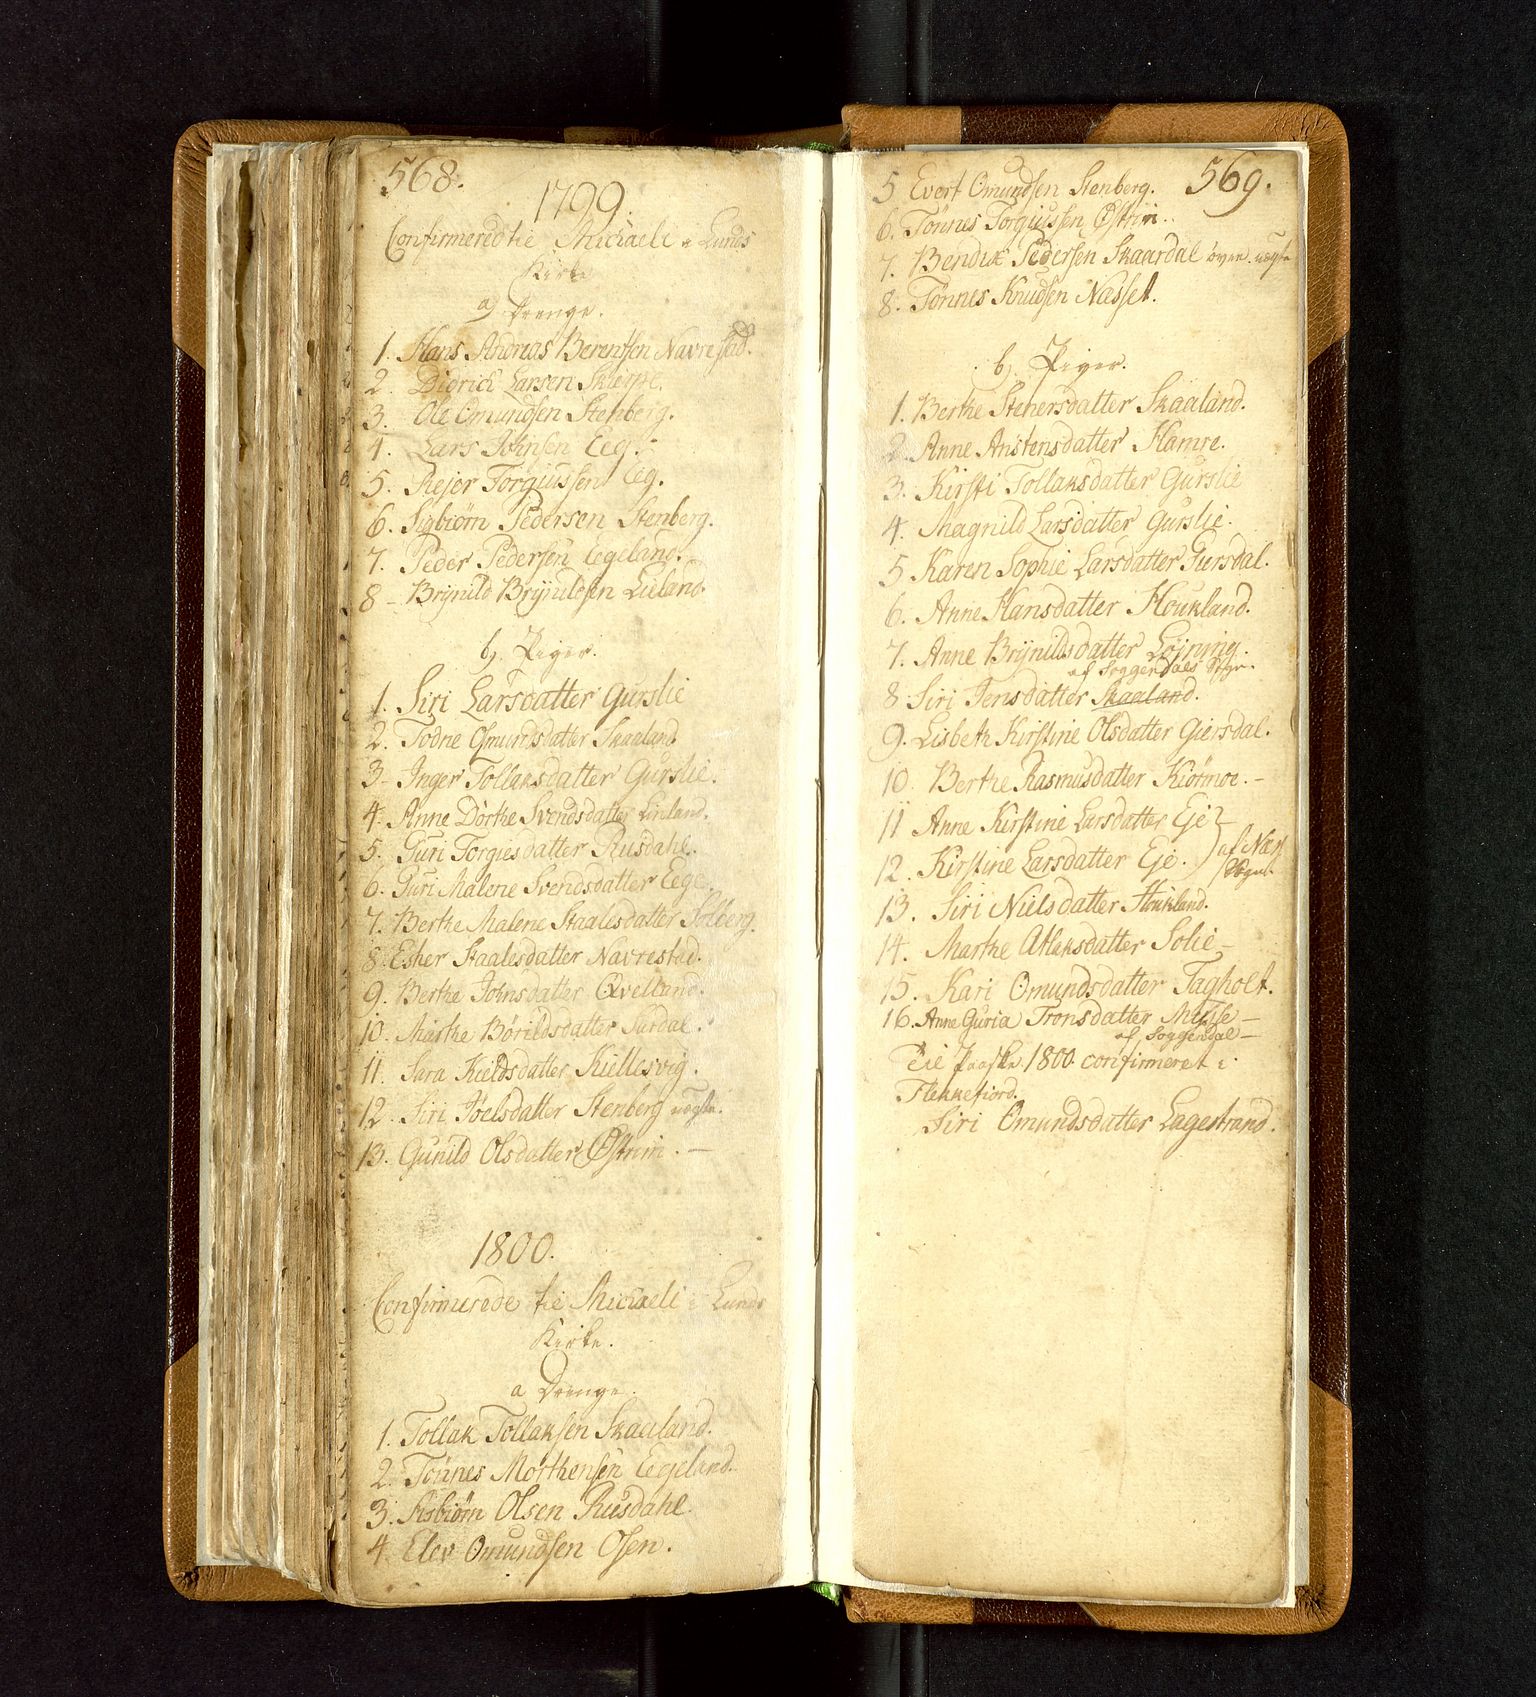 568.
1799.
Confirmerede til Michaeli i Lunds
Kirke
a) Drenge.
1. Hans Andreas Berentsen Navrestad.
2. Didrich Larsen Skierpe.
3. Ole Omundsen Stenberg.
4. Lars Johnsen Eeg.
5. Rejer Torgiussen Eeg.
6. Sigbiørn Pedersen Stenberg.
7. Peder Pedersen Egeland.
8 - Brynild Brynildsen Lieland.
b). Piger.
1. Siri Larsdatter Gurslie
2. Todne Osmundsdatter Skaaland
3- Inger Tollaksdatter Gurslie.
4. Anne Dorthe Svendsdatter Linland.
5. Guri Torgiesdatter Rusdahl.
6. Guri Malene Svendsdatter Eege.
7. Berthe Malene Staalesdatter Solberg.
8. Esher Staalesdatter Navrestad.
9. Berthe Johnsdatter Qvelland.
10. Marthe Børildsdatter Surdal.
11. Sara Kieldsdatter Kiellesvig.
12. Siri Joelsdatter Stenberg uægte.
13. Gunild Olsdatter Østrem. -
1800.
Confirmerede til Michaeli i Lunds
Kirke.
a Drenge.
1. Tollak Tollaksen Skaaland.
2. Tønnes Morthensen Egeland.
3. Asbiørn Olsen Rusdahl.
4. Elev Omundsen Osen.
569.
5 Evert Omundsen Stenberg.
6. Tønnes Torgiussen Østrem.
7. Bendix Pedersen Skaardal øvre. uægte
8. Tønnes Knudsen Næsset.
b). Piger.
1. Berthe Stenersdatter Skaaland.
2. Anne Anstensdatter Hamre.
3. Kirsti Tollaksdatter Gurslie
4. Magnild Larsdatter Gurslie.
5 Karen Sophie Larsdatter Gursdal.
6. Anne Hansdatter Houkland.
7. Anne Brynildsdatter Løjning.
af Soggendals Sogn.
8 Siri Jensdatter Skaaland.
9. Lisbeth Kirstine Olsdatter Giersdal.
10. Berthe Rasmusdatter Kiørmoe. -
11 Anne Kirstine Larsdatter Eje
12. Kirstine Larsdatter Eje.
af Næs
Sogn.
13. Siri Nielsdatter Houkland.
14. Marthe Atlaksdatter Solie -
15. Kari Omundsdatter Tagholt.
16. Anne Guria Tronsdatter Mysse -
af Soggendal -
Til Paaske 1800 confirmeret i
Flekkefiord.
Siri Omundsdatter Lagestrand.